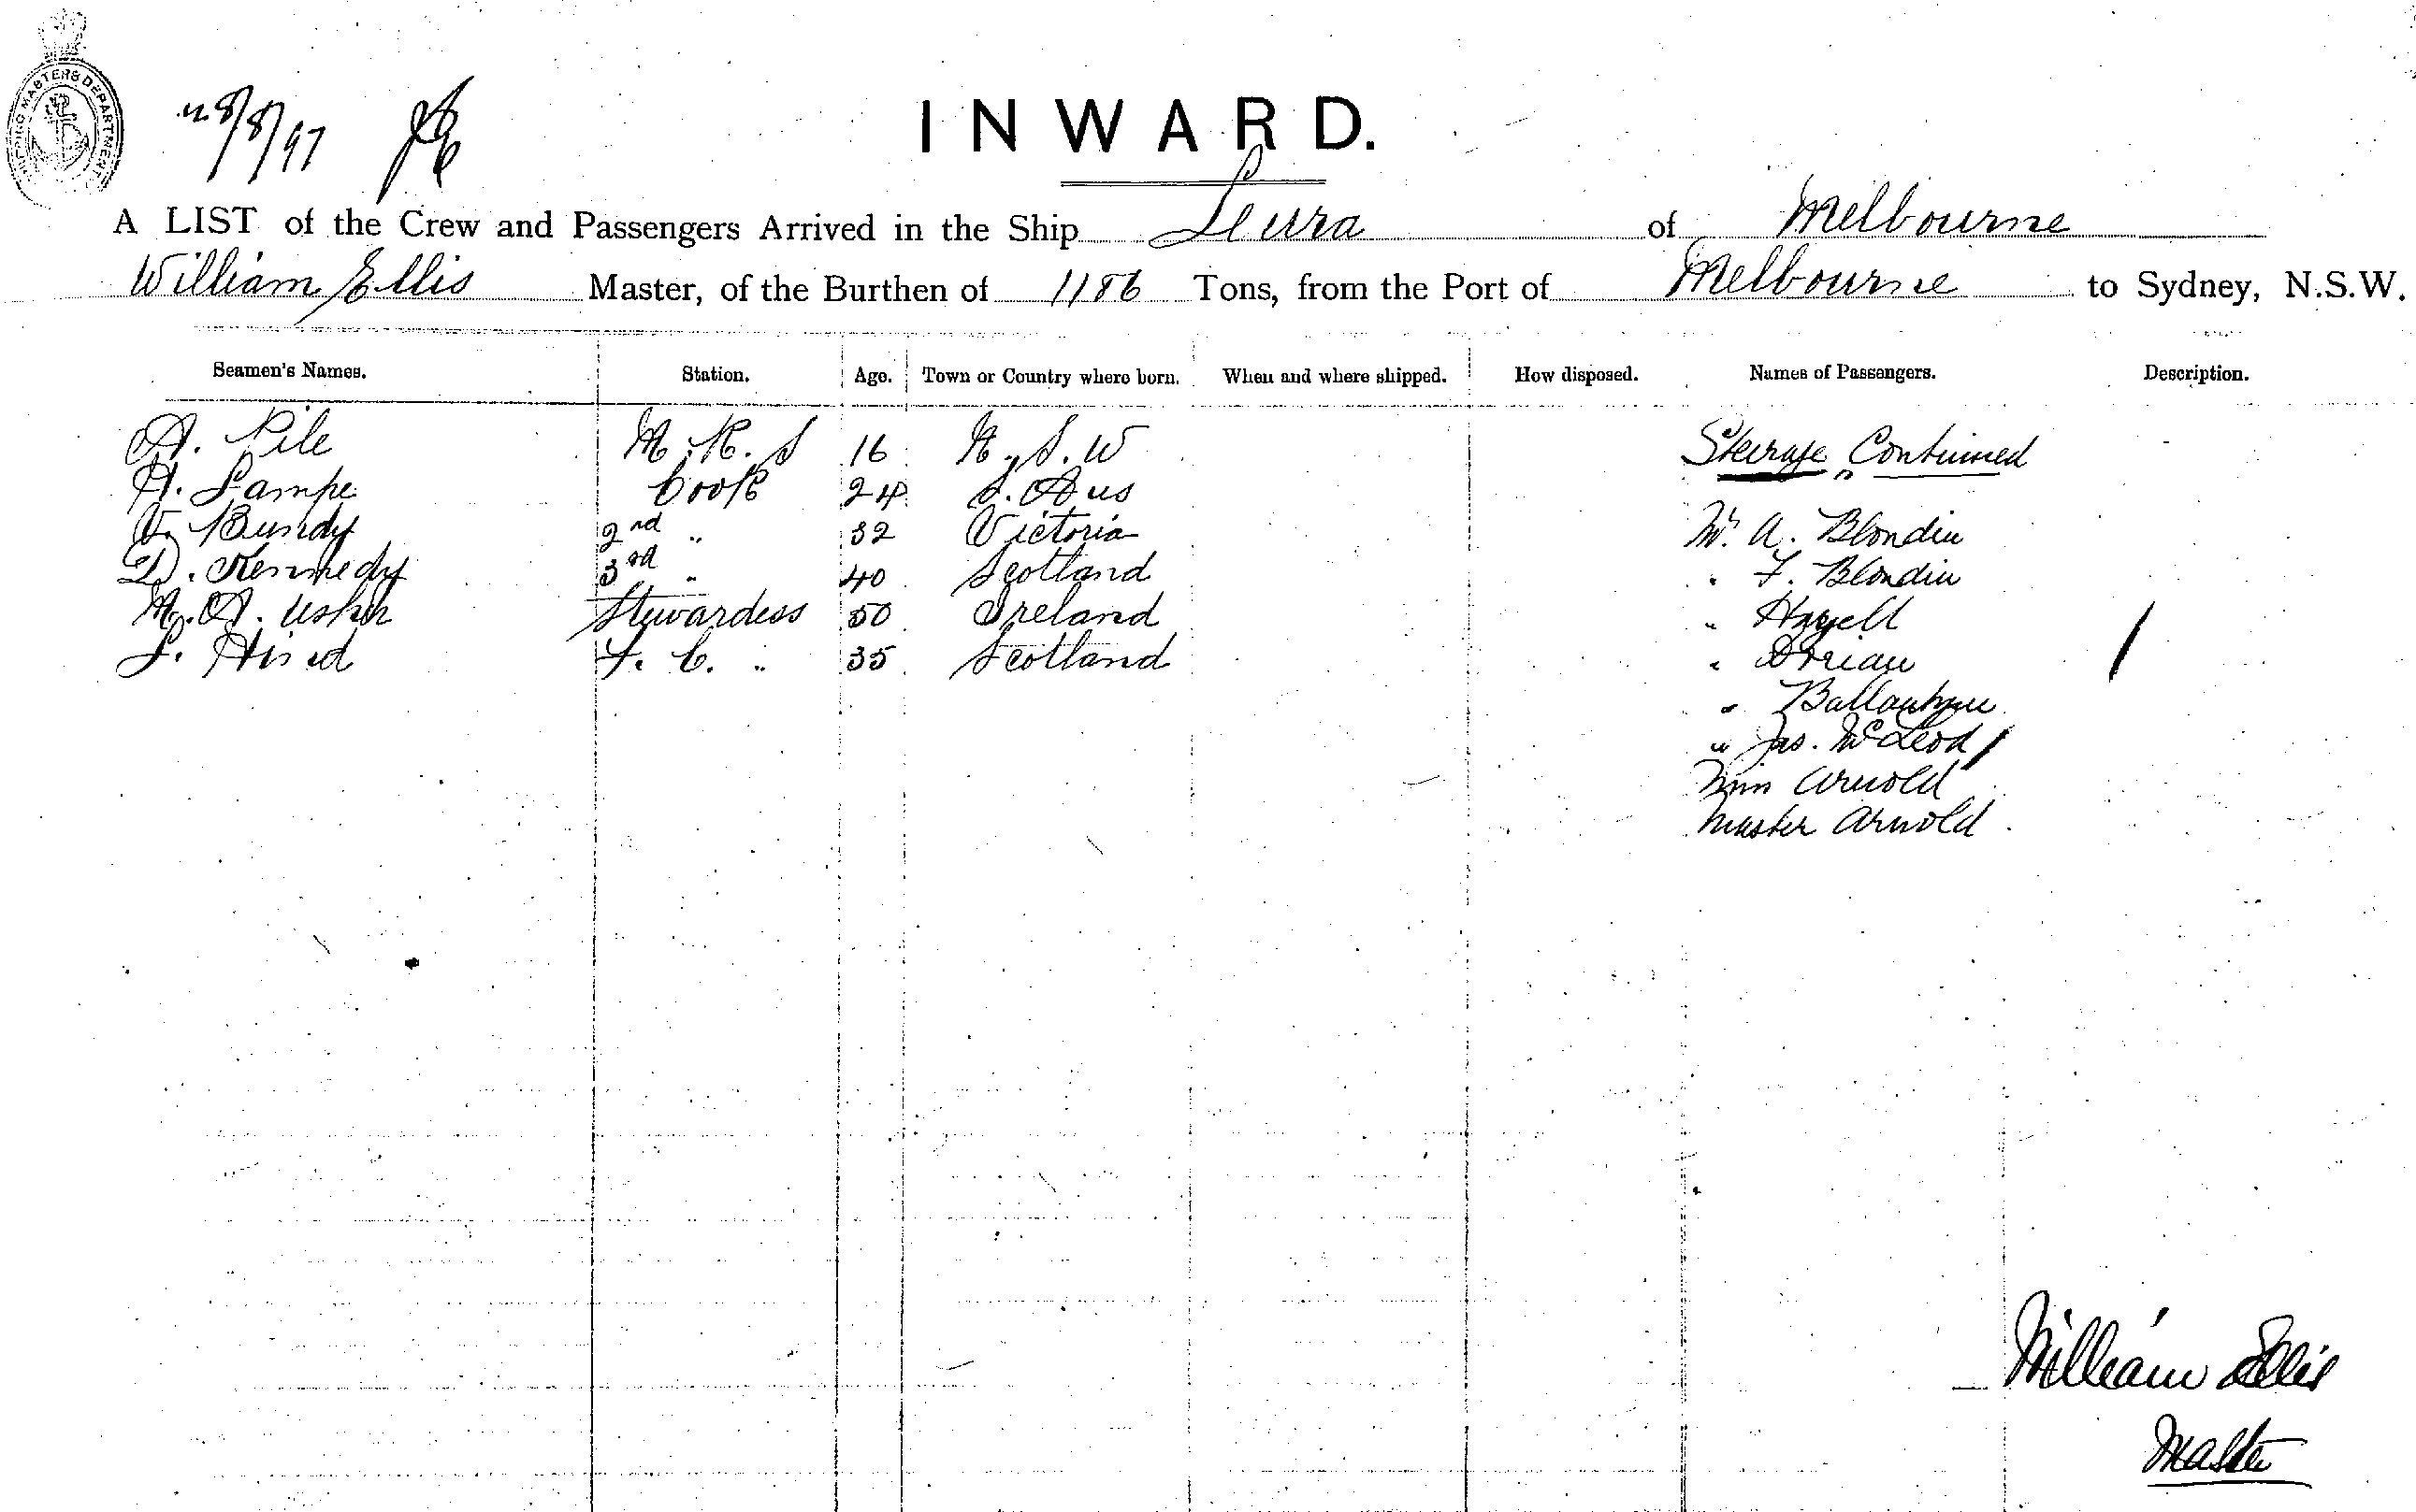 SHIPPING MASTERS DEPARTMENT
8/8/97
INWARD.
A LIST of the Crew and Passengers Arrived in the Ship Leura of Melbourne
William Ellis Master, of the Burthen of 1186 Tons, from the Port of Melbourne to Sydney, N.S.W.
Seamen's Names. Station. Age. Town or Country where born. When and where shipped. How disposed. Names of Passengers. Description.
A. Pile M. R. S 16 N. S. W Steerage Continued
H. Lampe Cook 24 S. Aus
V. Bundy 2nd " 32 Victoria Mr. A. Blondin
D. Kennedy 3rd " 40 Scotland " F. Blondin
M. A. Usher Stewardess 50 Ireland "
L. Hird F. C. " 35 Scotland " O'Brian
" Ballantyne
" Jas. McLeod
Miss Arnold
Master Arnold
William Ellis
Master